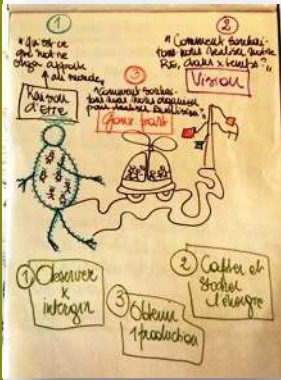 ①
"Qu'est-ce
que notre
orga apporte
au monde"
Raison
d'Être
②
"Comment souhai-
tons nous réaliser notre
RE, dans x temps?"
Vision
③
"Comment souhai-
tons nous nous organiser
pour réaliser
① Observer
x
interagir
② Capter et
Stocker
l'énergie
③ Obtenir
1 production